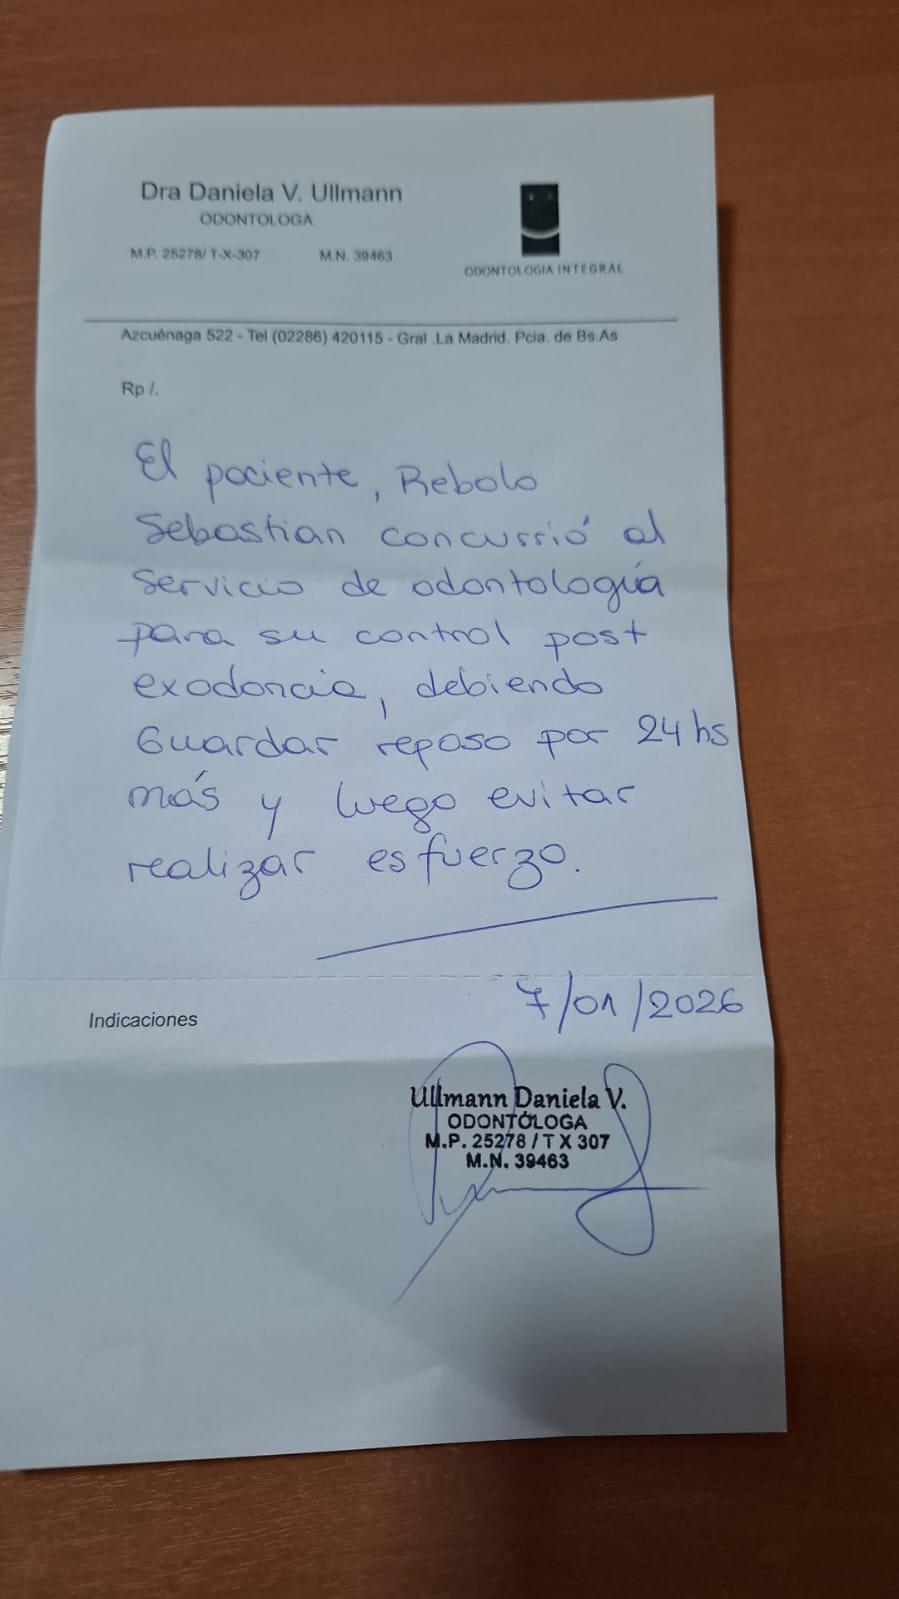 Dra Daniela V. Ullmann
ODONTOLOGA
M.P. 25278/ T-X-307 M.N. 39463
ODONTOLOGIA INTEGRAL
Azcuénaga 522 - Tel (02286) 420115 - Gral .La Madrid. Pcia. de Bs.As
Rp /.
El paciente, Rebolo
Sebastian concurrió al
Servicio de odontología
para su control post
exodoncia, debiendo
Guardar reposo por 24 hs
más y luego evitar
realizar esfuerzo.
7/01/2026
Indicaciones
Ullmann Daniela V.
ODONTÓLOGA
M.P. 25278 / T X 307
M.N. 39463